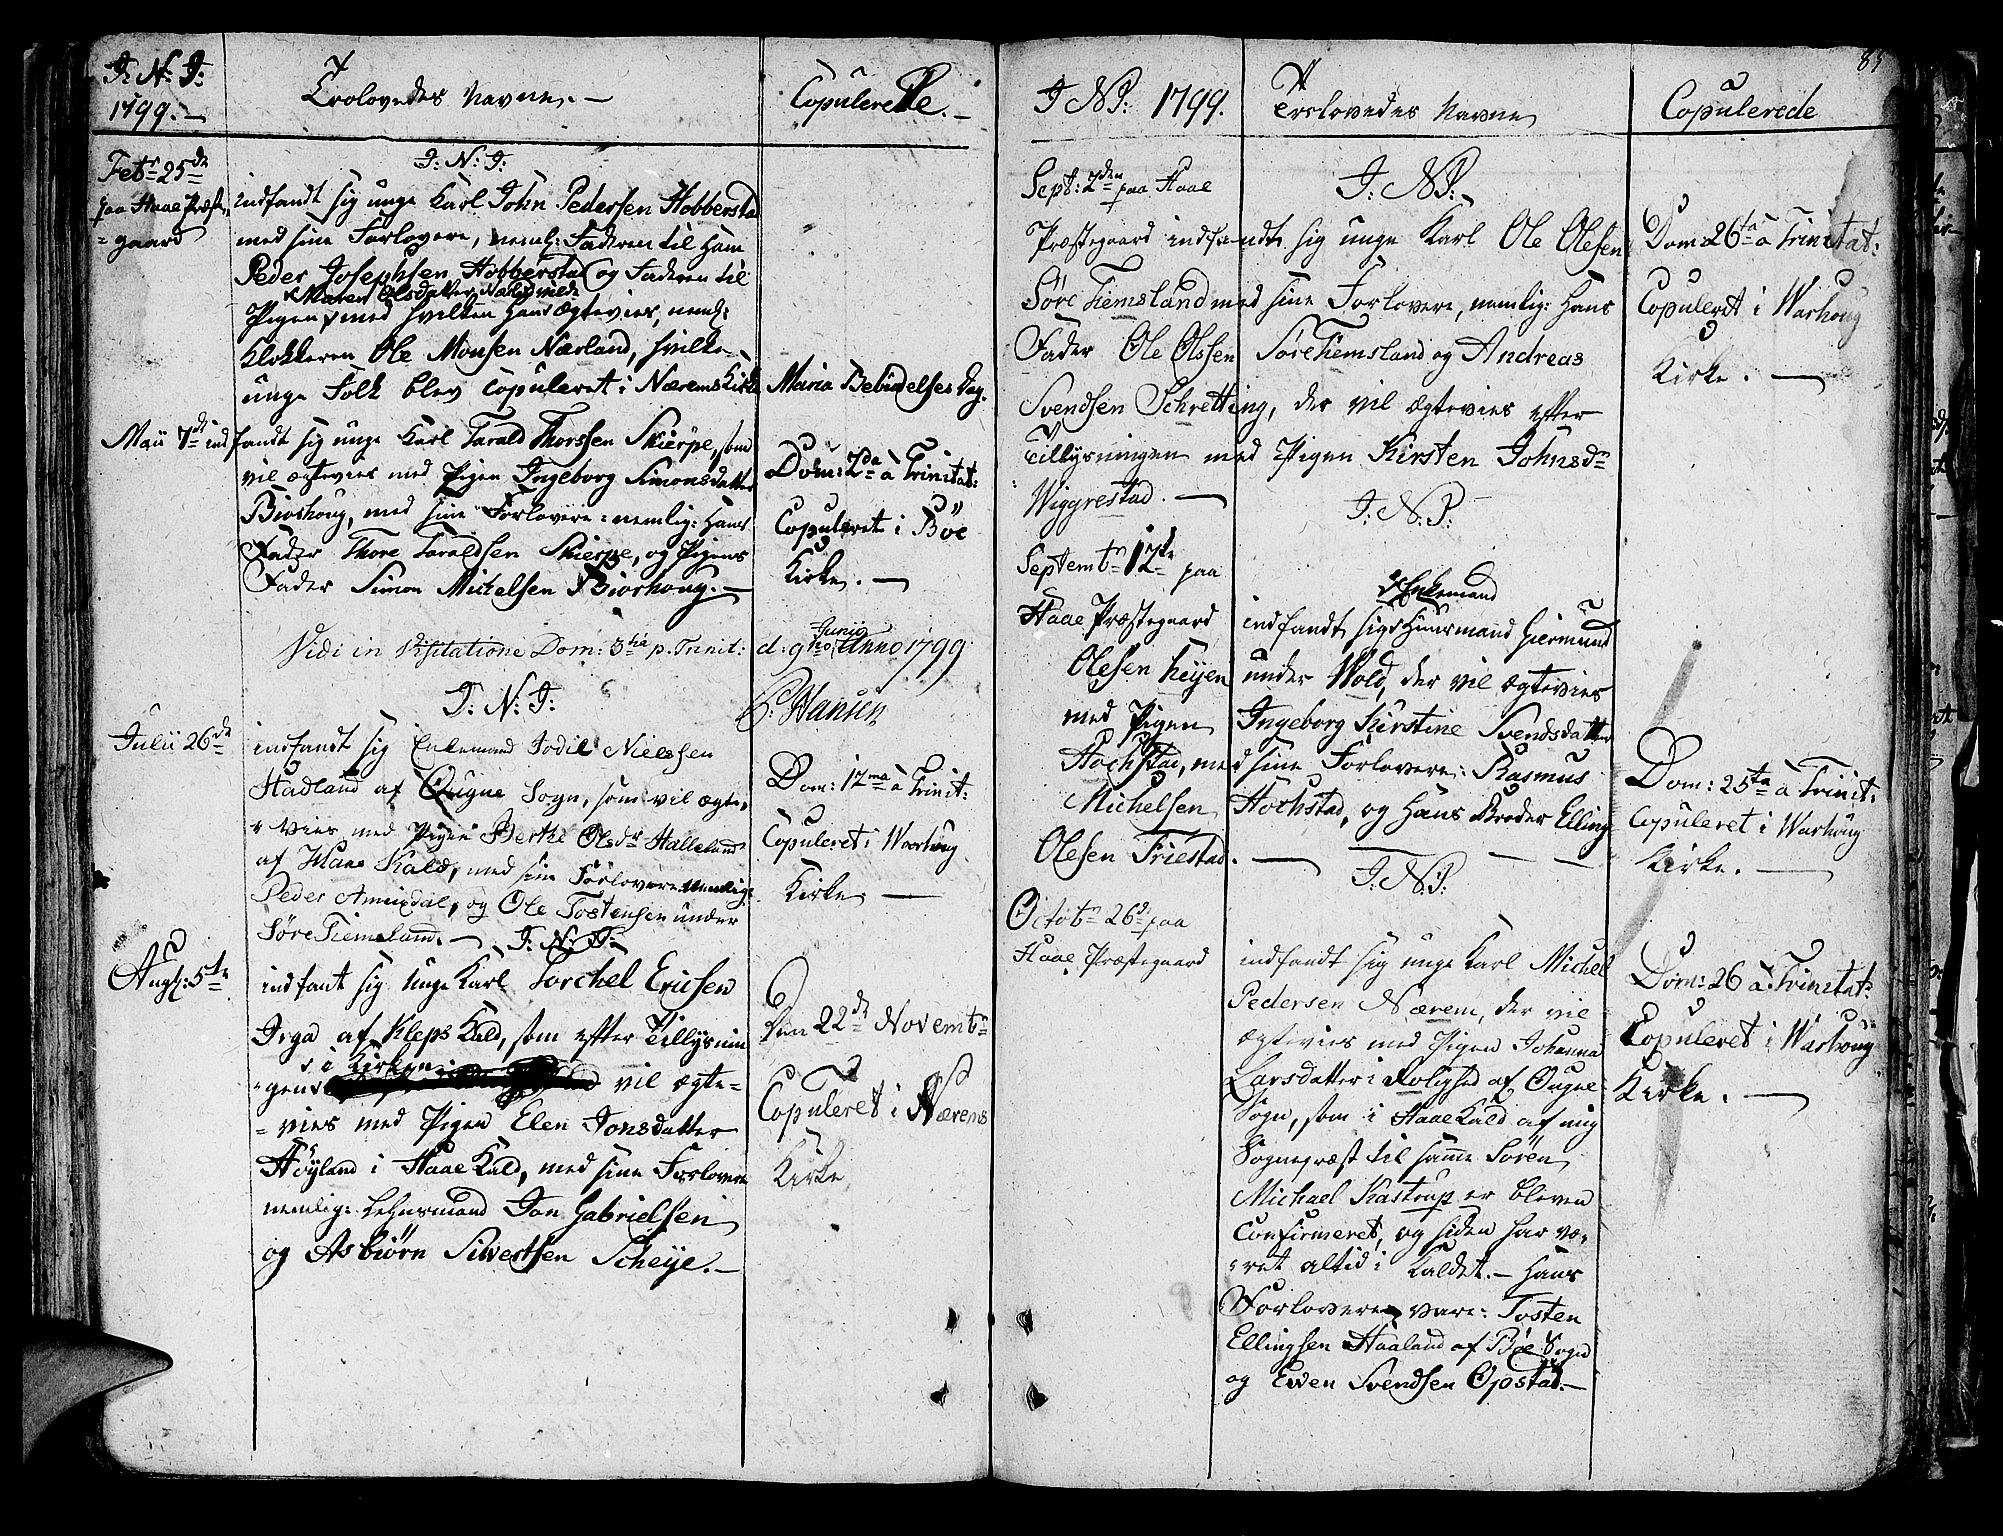 J: N: J:
1799. —
Trolovedes Navne. —
Copulerede. —
Febr 25de
paa Haae Præste-
= gaard
J: N: J:
indfandt sig unge Karl John Pedersen Hobberstad
med sine Forlovere, neml: Faderen til ham
Peder Josephsen Hobberstad og Faderen til
x Maren Olsdatter Nærland
Pigen x med hvilken han ægtevies, neml:
Klokkeren Ole Monsen Nærland, hvilke
unge Folk blev Copuleret i Nærems Kirke
Maria Bebudelses Dag.
Maii 7de indfandt sig unge Karl Tarald Thorssen Skierpe, som
vil ægtevies med Pigen Ingeborg Simonsdatter
Biorhoug, med sine Forlovere: nemlig: Hans
Fader Thore Taraldsen Skierpe, og Pigens
Fader Simon Michelsen Biorhoug. —
Dom: 2da à Trinitat:
Copuleret i Böe
Kirke. —
Vidi in Visitatione Dom: 3tia p. Trinit: d: 9no Junio Anno 1799
P. Hansen
J: N: J:
Julii 26de
indfandt sig Enkemand Jodil Nielssen
Hadland af Ougne Sogn, som vil ægte-
= vies med Pigen Berthe Olsdr Halleland
af Haae Kald, med sine Forlovere nemlig:
Peder Ameisdal, og Ole Tostensen under
Söre Tiemsland. —
Dom: 12ma à Trinit:
Copuleret i Warhoug
Kirke —
J: N: J:
Aug: 5te
indfant sig unge Karl Torchel Ericsen
Orga af Kleps Kald, som efter Tillysnin
x i Kirken
= gen x vil ægte=
= vies med Pigen Elen Jonsdatter
Höyland i Haae Kald, med sine Forlovere
nemlig: Lehnsmand Jon Gabrielsen
og Asbiörn Sivertsen Scheye. —
den 22de Novembr
Copuleret i Nærems
Kirke
85
J: N: J: 1799.
Trolovedes Navne
Copulerede
J: N: J:
Sept: 2den paa Haae
Præstegaard indfandt sig unge Karl Ole Olesen
Söre Tiemsland med sine Forlovere, nemlig: Hans
Fader Ole Olssen Söre Tiemsland og Andreas
Svendsen Schretting, der vil ægtevies efter
Tillysningen med Pigen Kirsten Johnsdr
Wiggrestad. —
Dom: 26ta à Trinitat:
Copuleret i Warhoug
Kirke. —
J: N: J:
Septembr 12te paa
Haae Præstegaard
x Enkemand
indfandt sig x Huusmand Giermund
Olesen Heyen under Wold, der vil ægtevies
med Pigen Ingeborg Kirstine Svendsdatter
Hochstad, med sine Forlovere: Rasmus
Michelsen Hochstad, og Hans Broder Elling
Olesen Friestad. —
Dom: 25ta à Trinit:
Copuleret i Warhoug
Kirke. —
J: N: J:
Octobr 26de paa
Haae Præstegaard
indfandt sig unge Karl Michel
Pedersen Nærem, der vil
ægtevies med Pigen Johanna
Larsdatter i Rolighed af Ougne
Sogn, som i Haae Kald af mig
Sognepræst til samme Sören
Michael Kastrup er bleven
Confirmeret, og siden har væ-
= ret altid i Kaldet. — Hans
Forlovere vare: Tosten
Ellingsen Haaland af Böe Sogn
og Even Svendsen Opstad. —
Dom: 26 à Trinitat:
Copuleret i Warhoug
Kirke. —